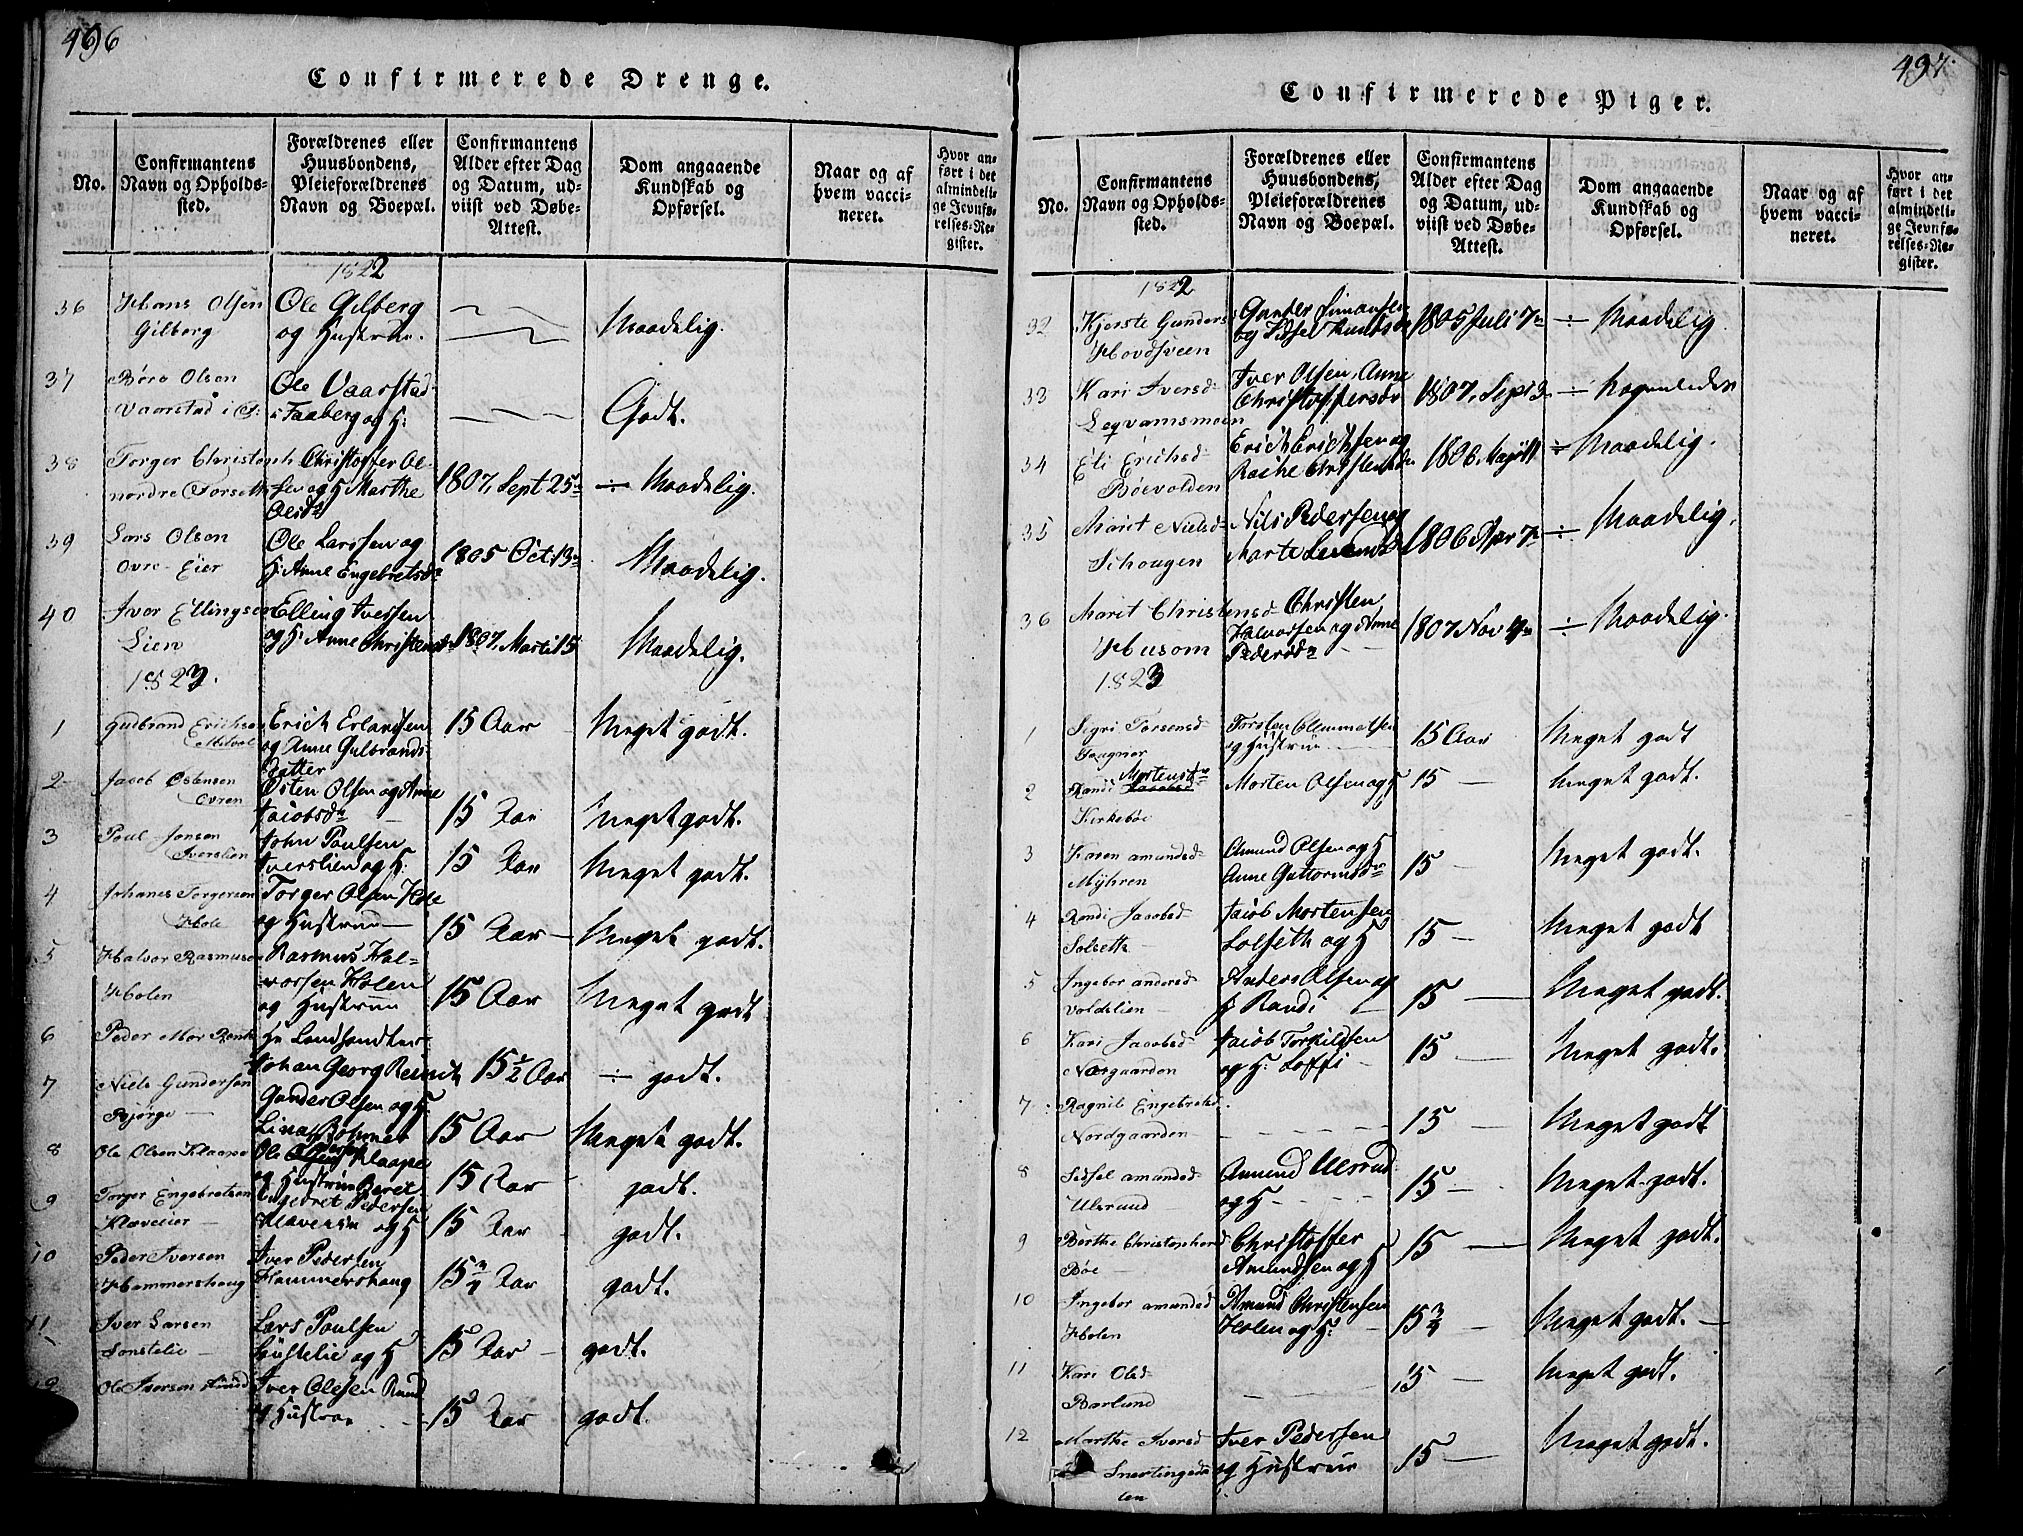 496
Confirmerede Drenge.
No.
Confirmantens
Navn og Opholds-
sted.
Forældrenes eller
Huusbondens,
Pleieforældrenes
Navn og Boepæl.
Confirmantens
Alder efter Dag
og Datum, ud-
viist ved Døbe-
Attest.
Dom angaaende
Kundskab og
Opførsel.
Naar og af
hvem vacci-
neret.
Hvor an-
ført i det
almindeli-
ge Jevnfø-
relses-Re-
gister.
1822
36 Hans Olsen Ole Gilberg
Gilberg og Hustrue. Maadelig.
37 Olsen Ole Vaarstad
Vaarstad i Faaberg og H: Godt.
38 Torger Christoph Christoffer Ol-
nordre Torseth sen og H Marthe 1807, Sept 25 ÷ Maadelig.
Olsd
39 Lars Olsen Ole Larssen og
Ovre Eier H: Anne Engebretsd 1805 Oct 13 Maadelig.
40 Iver Ellingsen Elling Iverssen
Lien og H: Anne Christensd 1807, Marti 15 Maadelig.
1823.
1 Gudbrand Erichsen Erich Erlandsen 15 Aar Meget godt.
og Anne Gulbrands
datter
2 Jacob Østensen Østen Olsen og Anne
Ovren Jacobsd 15 Aar Meget godt.
3 Poul Jonsen John Poulsen
Iverslien Iverslien og H: 15 Aar Meget godt.
4 Johanes Torgersen Torger Olsen Hole
Hole og Hustrue 15 Aar Meget godt.
5 Halvor Rasmusen Rasmus Hal-
Holen vorsen Holen
og Hustrue 15 Aar Meget godt
6 Peder Mor
Johan Georg 15 1/2 Aar ÷ godt.
7 Niels Gundersen Gunder Olsen og H
Bjørge 15 Aar Meget godt.
8 Ole Olsen Klaape Ole Klaape
og Hustrue Beret 15 Aar godt.
9 Torger Engebretsen Engebret Pedersen
Klaveier og H 15 Aar godt.
10 Peder Iversen Iver Pedersen
Hammershaug Hammershaug 15 Aar godt.
11 Iver Larsen Lars Poulsen
og H 15 Aar godt.
12 Ole Iversen Iver Olesen
og Hustrue 15 Aar godt.
497
Confirmerede Piger.
No.
Confirmantens
Navn og Opholds-
sted.
Forældrenes eller
Huusbondens,
Pleieforældrenes
Navn og Boepæl.
Confirmantens
Alder efter Dag
og Datum, ud-
viist ved Døbe-
Attest.
Dom angaaende
Kundskab og
Opførsel.
Naar og af
hvem vacci-
neret.
Hvor an-
ført i det
almindeli-
ge Jevnfø-
relses-Re-
gister.
1822
32 Kjerste Gunders Gunder Simensen 1805 Juli 7 ÷ Maadelig.
Hovdsveen
33 Kari Iversd Iver Olsen, Anne
Christoffersd 1807, Sept 3 ÷
34 Eli Erichsd Erich Erichsen og
Bøevolden 1806 ÷ Maadelig.
35 Marit Nielsd Nils Pedersen og
Schougen Marte 1806 Apr 7 ÷ Maadelig.
36 Marit Christensd Christen
Husom Halvorsen og Anne 1807 Nov ÷ Maadelig.
Pedersd
1823
1 Sigri Torsensd Torsten Clemmetsen
og Hustrue 15 Aar Meget godt
2 Randi Mortensd Morten Olsen og H 15 — Meget godt.
Kirkebøe
3 Karen Amundsd Amund Olsen og H
Myhren Anne Guttormsd 15 — Meget godt.
4 Randi Jacobsd Jacob Mortensen
Solseth Solseth og H 15 — Meget godt.
5 Ingebor Andersd Anders Olsen og
Voldslien H Randi 15 — Meget godt.
6 Kari Jacobsd Jacob Torkildsen
Nærgaarden og H: 15 — Meget godt.
7 Ragnil Engebretsd
Nordgaarden 15 — Meget godt
8 Sidsel Amundsd Amund Ulsrud
Ulsrund og H 15 — Meget godt.
9 Berthe Christophersd Christoffer
Bøe Amundsen og H 15 — Meget godt.
10 Ingebor Amundsd Amund Christensen
Holen Holen og H: 15 3/4 — Meget godt.
11 Kari Olsd
Barlund 15 — Meget godt.
12 Marthe Iversd Iver Pedersen
Snertingeda og Hustrue 15 — Meget godt.
len